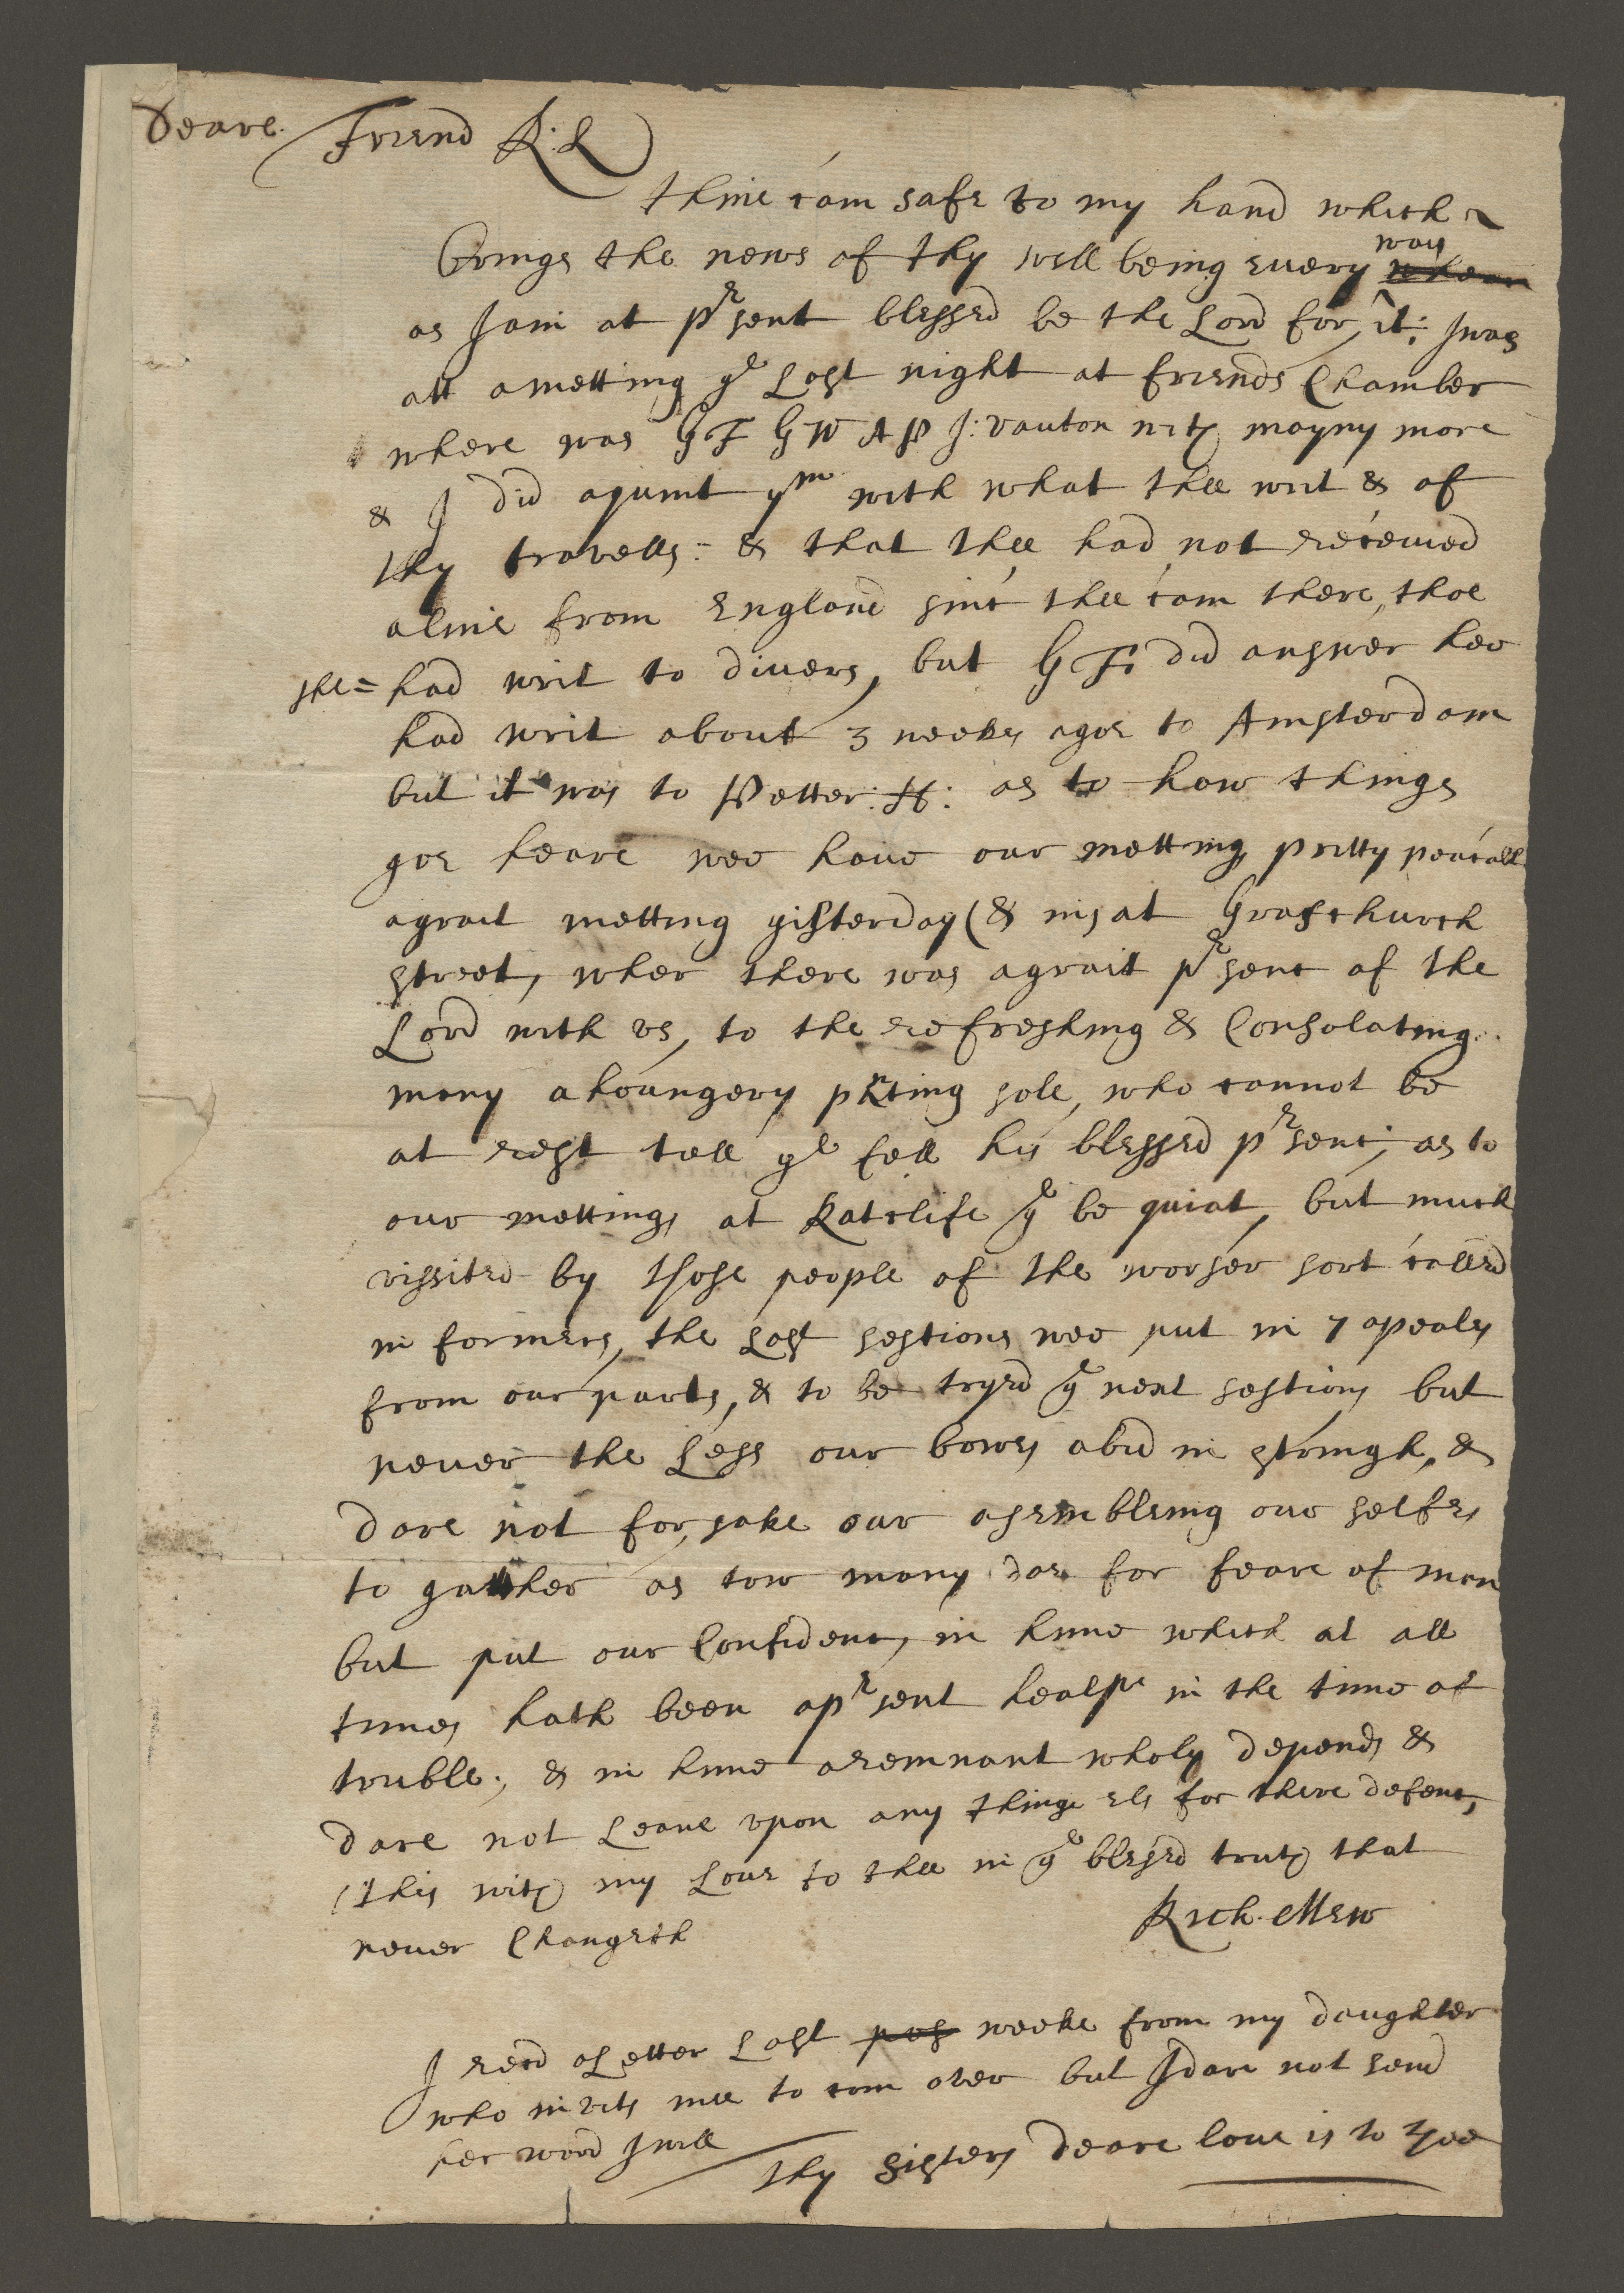 Deare Friend R:L
thine cam safe to my hand which
brings the news of thy well being every way
as I am at pʳsent blessed be the Lord for it: I was
att a metting yᵉ Last night at friends Chamber
where was GF GW AP J: vauton with mayny more
& I did aquint yᵐ with what thee writ & of
thy travells: & that thee had not received
a line from England sinc thee cam there, thoe
she= had writ to divers, but GF: did answer hee
had writ about 3 weeks agoe to Amsterdam
but it was to Petter: H: as to how things
goe heare wee have our mettings pritty peacable
a grait metting yisterday (& in) at Graschurch
street, wher there was a grait pʳsenc of the
Lord with us, to the refreshing & Consolating
mony a houngery pnting sole, who cannot be
at rest tell yᵉ fell his blessed pʳsenc; as to
our mettings at Ratclife yᵉ be quiat, but much
vissited by those people of the worser sort called
in formers, the Last sestions wee put in 7 apeals
from our parts, & to be tryed yᵉ next sestions but
never the Less our bows abid in stringh, &
dare not for sake our asembleing our selfes
to gatther as tow many doe for feare of men
but put our Confidenc, in hime which at all
times hath been a pʳsent healpe in the time of
truble; & in hime a remnant wholy depends &
dare not Leane upon any thinge els for there defenc,
this with my Love to thee in yᵉ blesed truth that
never Changeth
Rich. Mew
I recd a Letter Last pos weeke from my daughter
who invits mee to com over but I dare not send
her word I will
thy sisters deare love is to thee